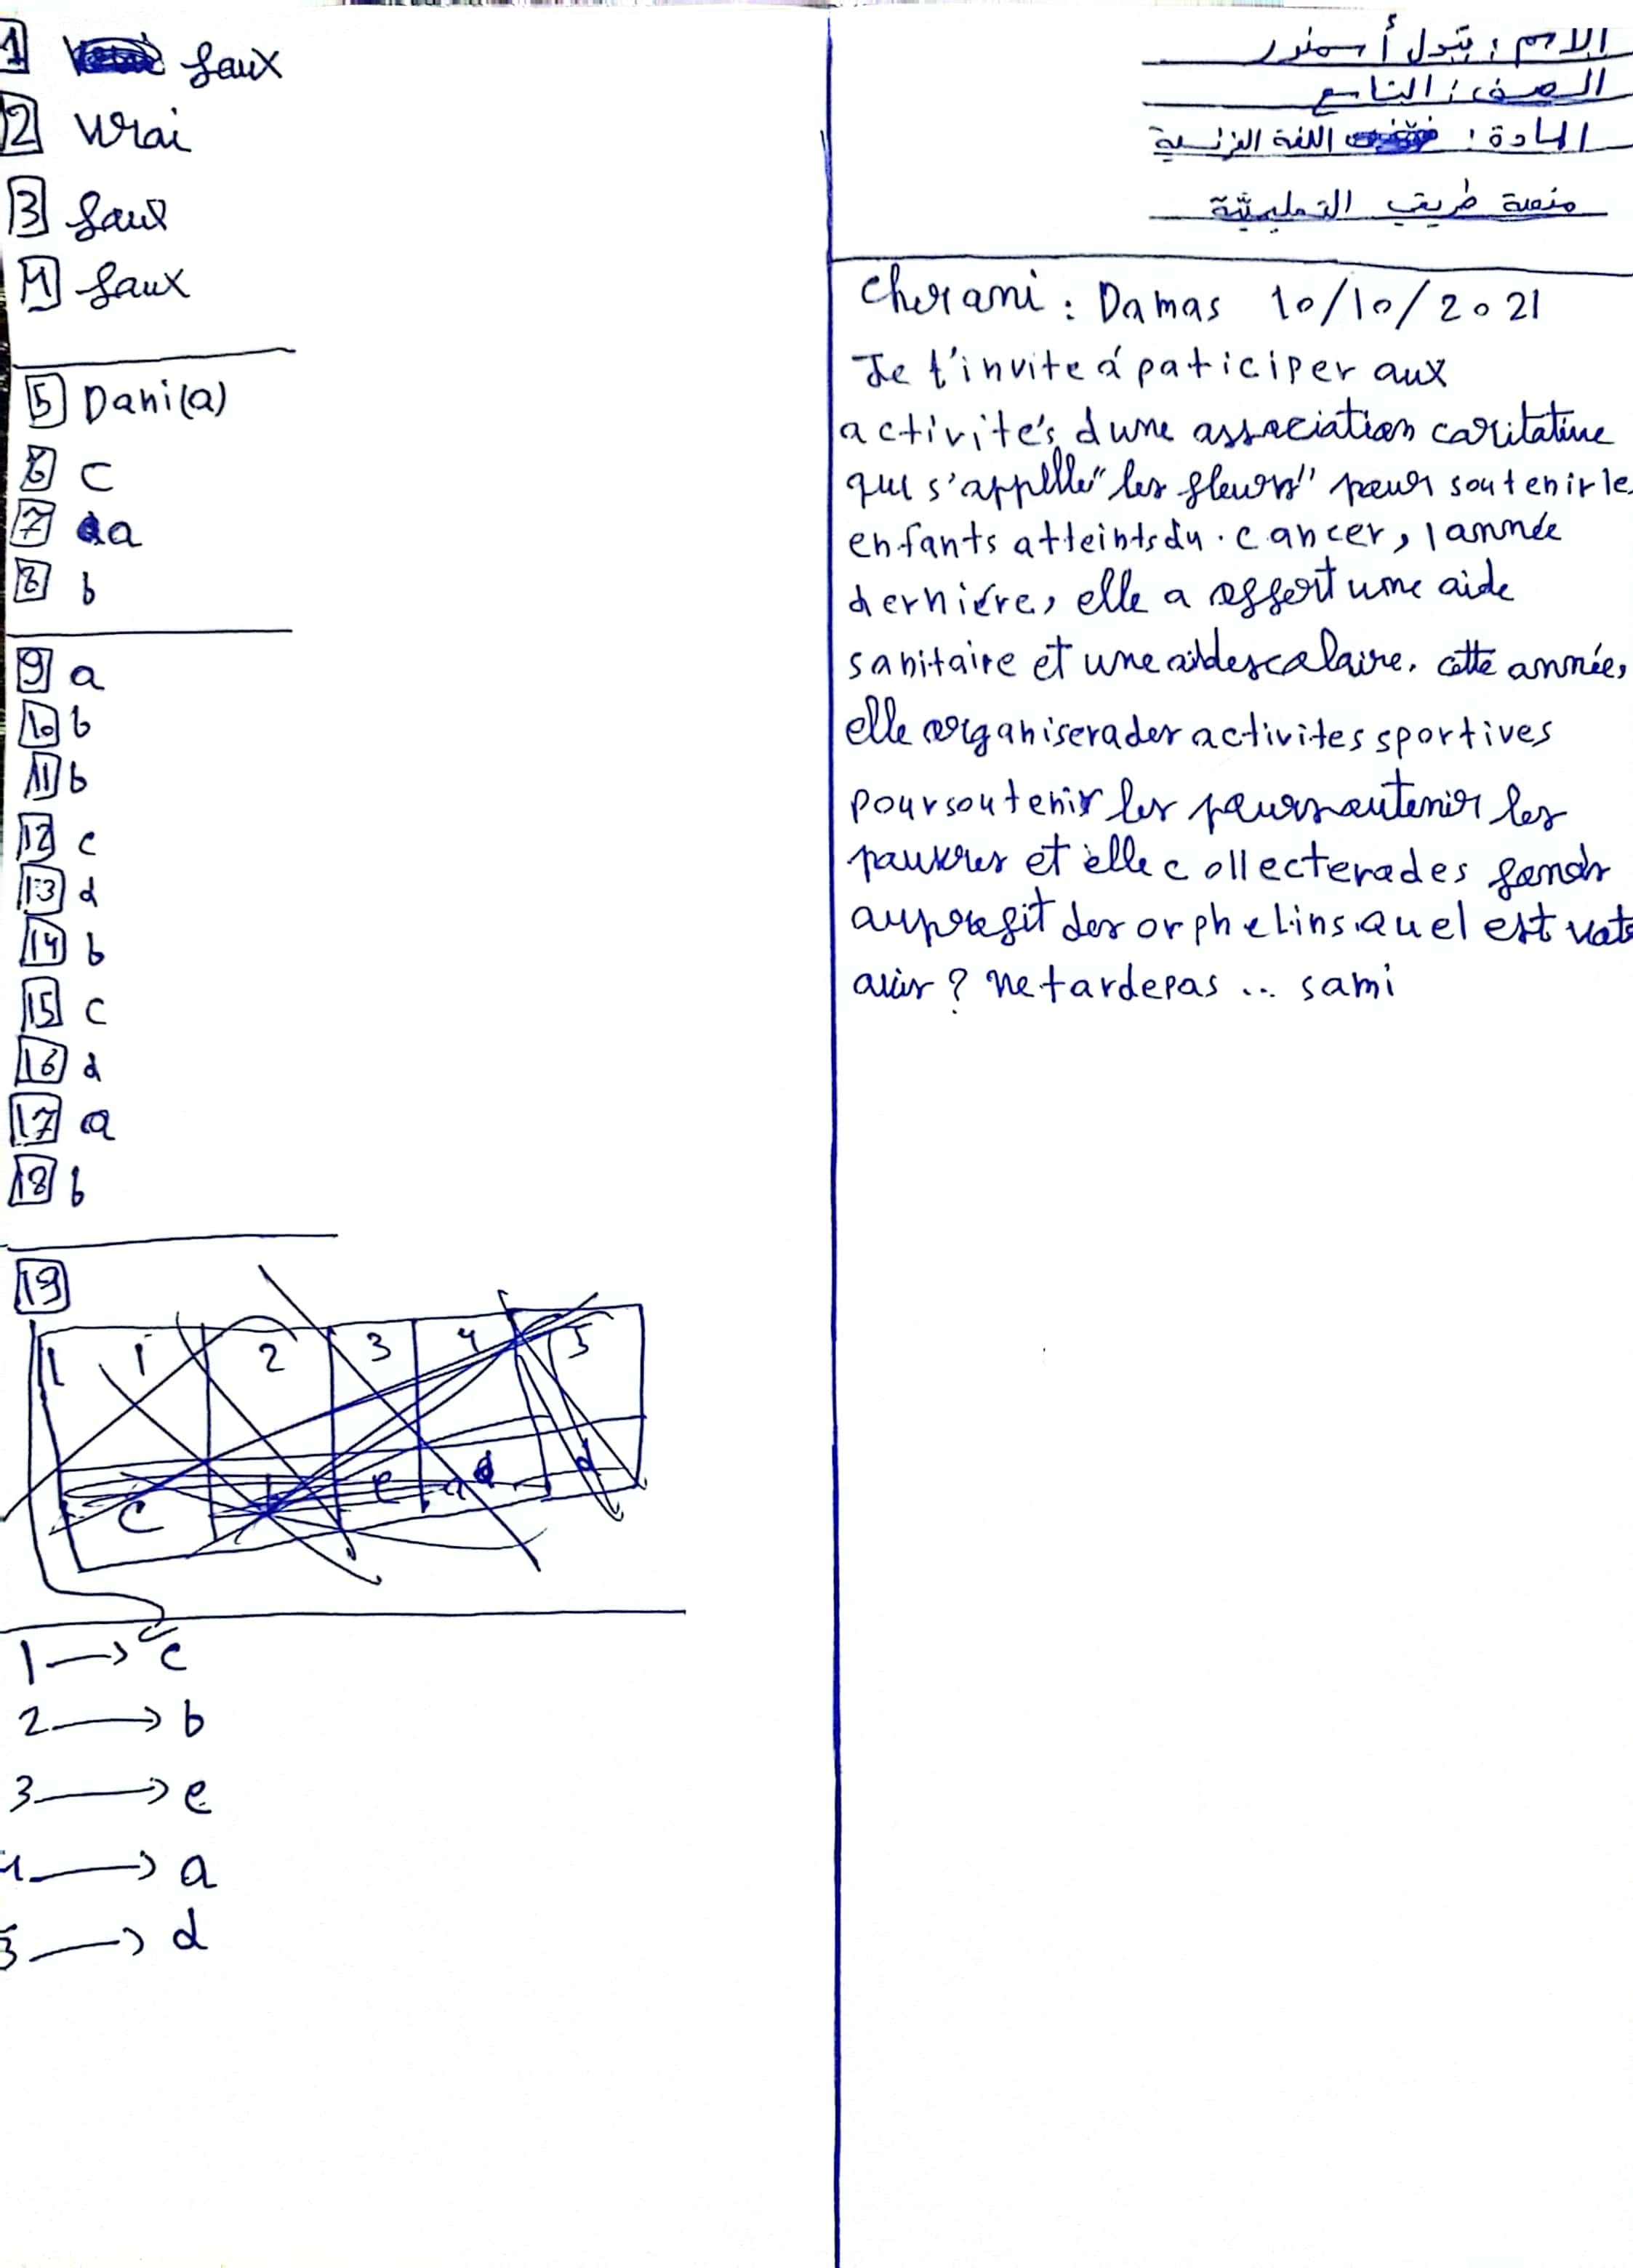 1 faux
2 vrai
3 faux
4 faux
5 Dani(a)
6 c
7 a
8 b
9 a
10 b
11 b
12 c
13 d
14 b
15 c
16 d
17 a
18 b
19
1 2 3 4 5
c e d d
1 → c
2 → b
3 → e
4 → a
5 → d
الاسم : بتول أسمندر
الصف : التاسع
المادة : اللغة الفرنسية
منصة طريقي التعليمية
Cher ami : Damas 10/10/2021
Je t'invite á paticiper aux
activités, d'une association caritative
qui s'appelle "les fleurs" pour soutenir le
enfants atteints du . cancer, l année
derniére, elle a offert une aide
sanitaire et une aide scolaire. cette année,
elle organisera des activites sportives
pour soutenir les pour soutenir les
pauvres et elle collectera des fonds
au profit des orphelins. quel est vot
avis ? ne tarde pas ... sami